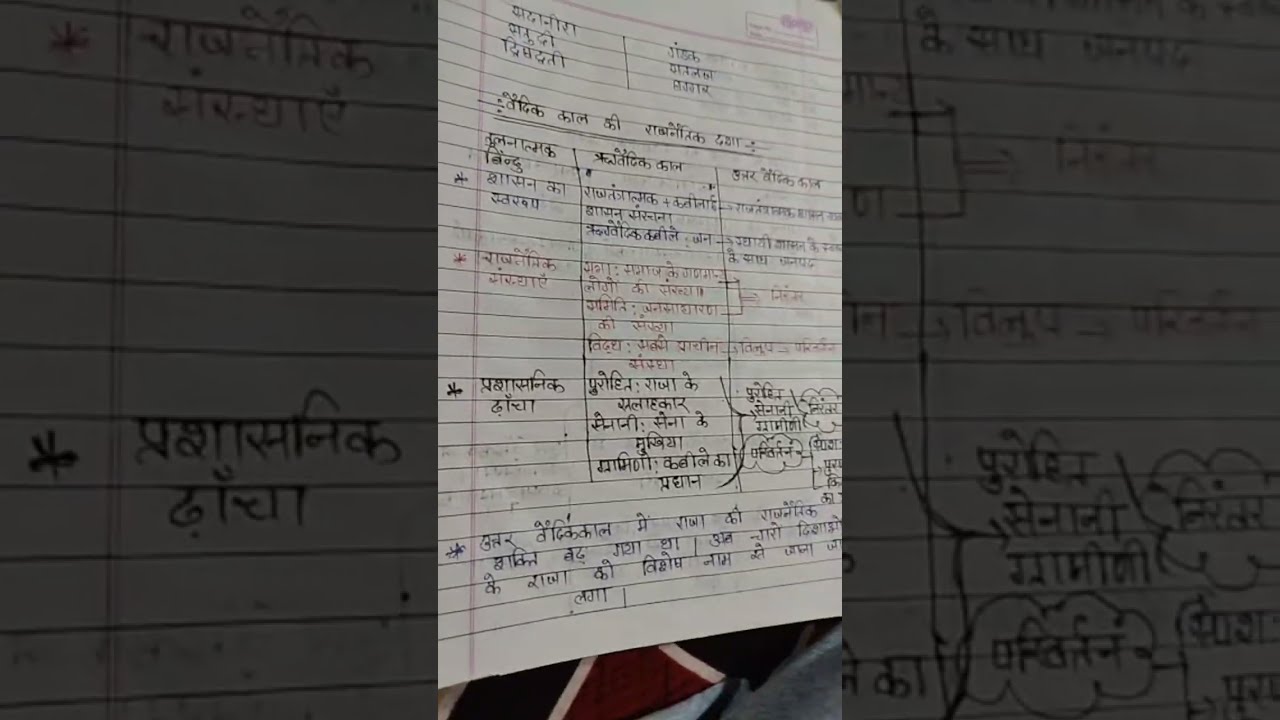 सदानीरा | गंडक
शतुद्री | सतलज
दृषद्वती | घग्गर
:: वैदिक काल की राजनैतिक दशा ::
तुलनात्मक बिन्दु | ऋग्वैदिक काल | उत्तर वैदिक काल
* शासन का | राजतंत्रात्मक + कबीलाई → राजतंत्रात्मक शासन
स्वरूप | शासन संरचना
ऋग्वैदिक कबीले : जन → स्थायी शासन के
के साथ जनपद
* राजनैतिक | सभा : समाज के गणमान्य
संस्थाएँ | लोगों की संस्था ⇒ निरंतर
समिति : जनसाधारण
की संस्था
विदथ : सबसे प्राचीन → विलुप → परिवर्तन
संस्था
* प्रशासनिक | पुरोहित : राजा के | पुरोहित
ढ़ाँचा | सलाहकार | सेनानी निरंतर
सेनानी : सेना के | ग्रामीणी
मुखिया | परिवर्तन
ग्रामिणी : कबीले का
प्रधान
* उत्तर वैदिककाल में राजा की राजनैतिक
शक्ति बढ़ गया था | अब चारो दिशाओ
के राजा को विशेष नाम से जाना जा
लगा |